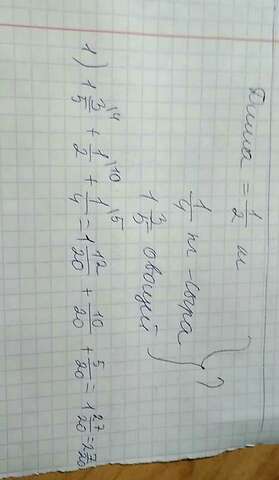 Дыша = 1/2 м
1/4 м - сыра } ?
1 3/5 овощей
1) 1 3/5\4 + 1/2\10 + 1/4\5 = 1 12/20 + 10/20 + 5/20 = 1 27/20 = 2 7/20